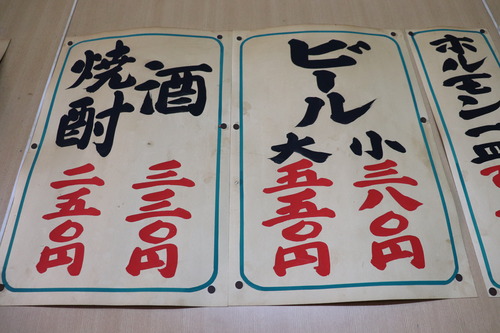 酒
三三〇円
焼酎
二五〇円
ホルモン一皿
ビール
小
三八〇円
大
五五〇円